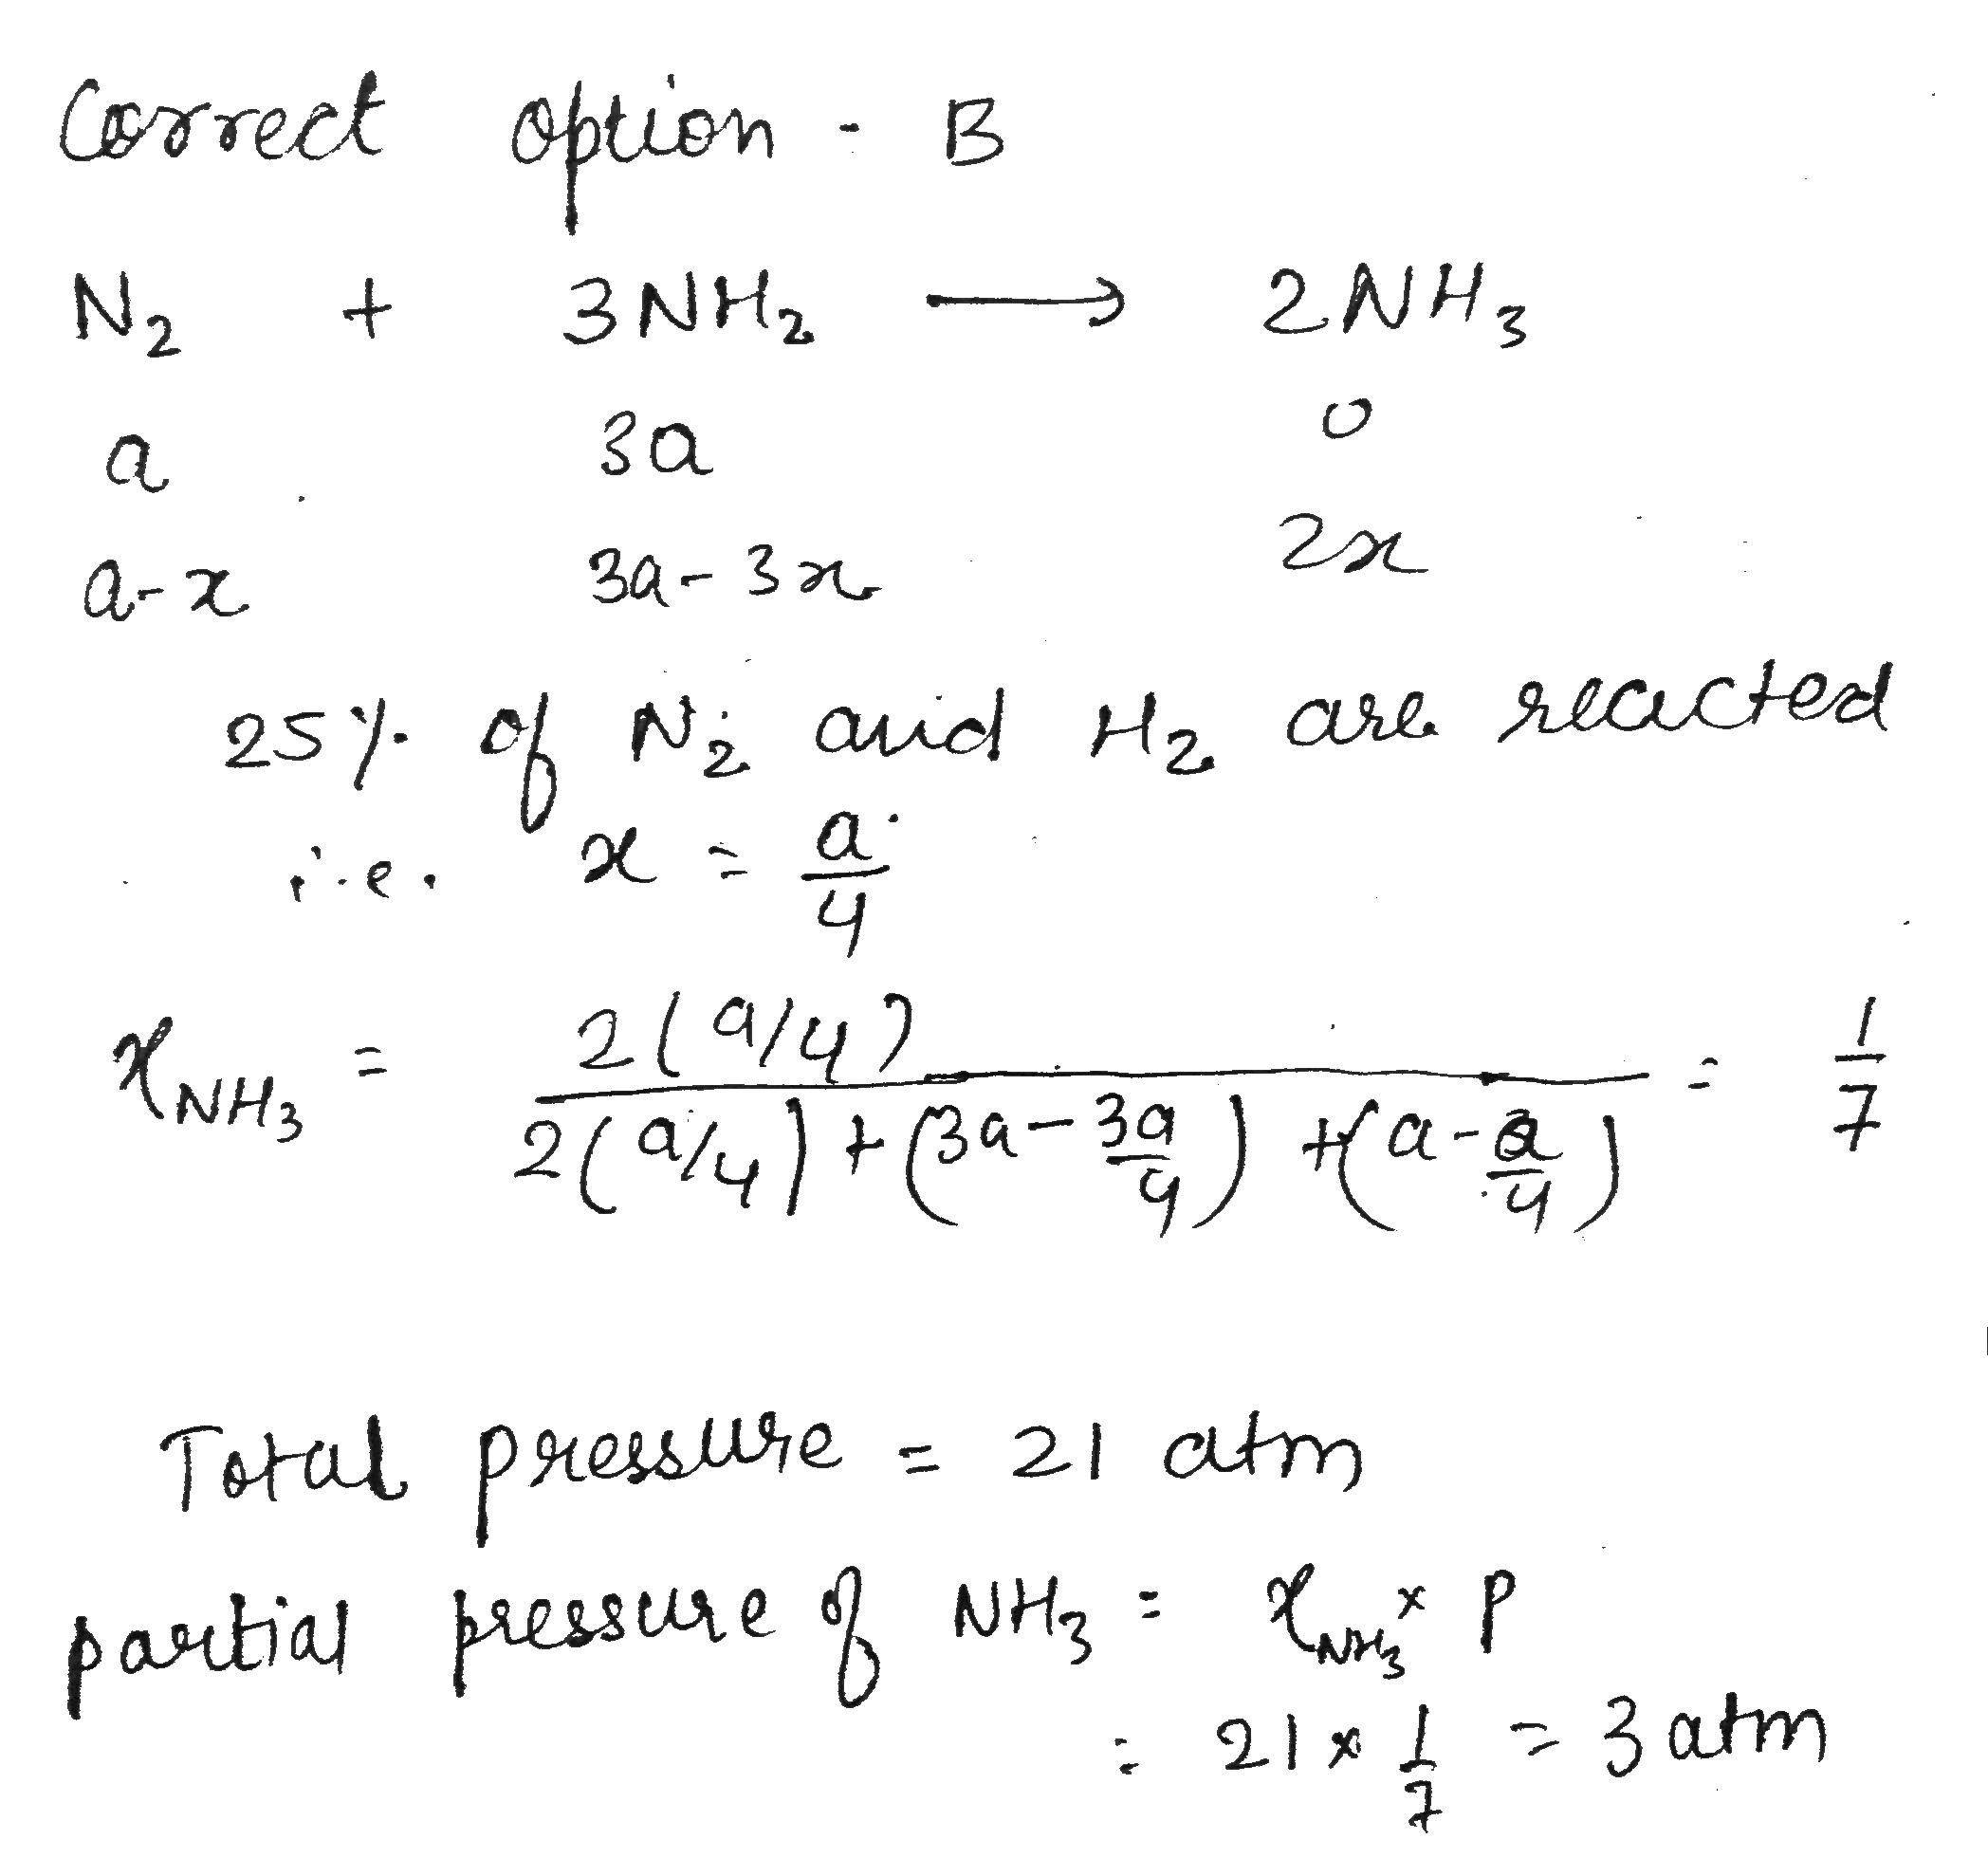 Correct option - B
N₂ + 3NH₂ ⟶ 2NH₃
a 3a 0
a-x 3a-3x 2x
25% of N₂ and H₂ are reacted
i.e. x = a/4
x_NH₃ = 2(a/4) / (2(a/4) + (3a - 3a/4) + (a - a/4)) = 1/7
Total pressure = 21 atm
partial pressure of NH₃ = x_NH₃ × P
= 21 × 1/7 = 3 atm